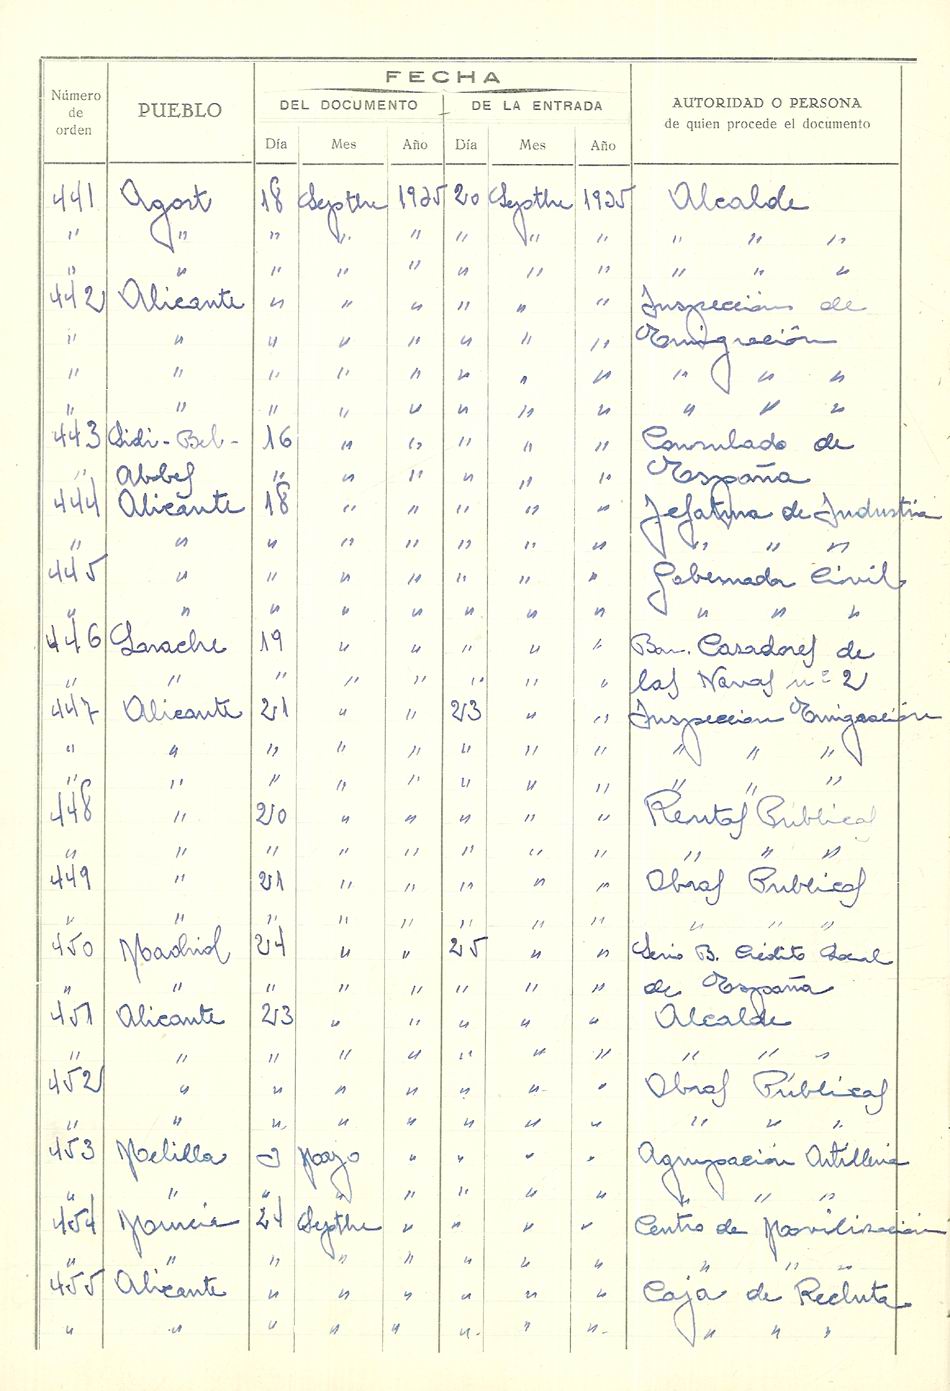 FECHA
Número de orden PUEBLO DEL DOCUMENTO DE LA ENTRADA AUTORIDAD O PERSONA de quien procede el documento
Día Mes Año Día Mes Año
441 Agost 18 Septbre 1935 20 Septbre 1935 Alcalde
" " " " " " " " " " "
" " " " " " " " " " "
442 Alicante " " " " " " Inspección de
" " " " " " " " Emigración
" " " " " " " " " " "
" " " " " " " " " " "
443 Sidi-Bel- 16 " " " " " Consulado de
" Abbes " " " " " " España
444 Alicante 18 " " " " " Jefatura de Industria
" " " " " " " " " " "
445 " " " " " " " Gobernador Civil
" " " " " " " " " " "
446 Larache 19 " " " " " Bon. Cazadores de
" " " " " " " " las Navas nº 2
447 Alicante 21 " " 23 " " Inspeccion Emigración
" " " " " " " " " " "
" " " " " " " " " " "
448 " 20 " " " " " Rentas Públicas
" " " " " " " " " " "
449 " 21 " " " " " Obras Publicas
" " " " " " " " " " "
450 Madrid 24 " " 25 " " B. Crédito Local
" " " " " " " " de España
451 Alicante 23 " " " " " Alcalde
" " " " " " " " " " "
452 " " " " " " " Obras Públicas
" " " " " " " " " " "
453 Melilla Mayo " " " " Agrupación Artilleria
" " " " " " " " " " "
454 Murcia 24 Septbre " " " " Centro de Movilización
" " " " " " " " " " "
455 Alicante " " " " " " Caja de Recluta
" " " " " " " " " " "